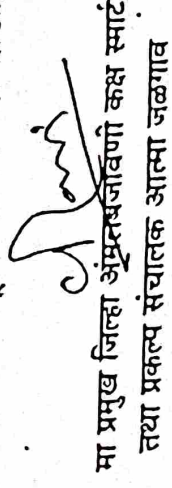 मा प्रमुख जिल्हा अंमलबजावणी कक्ष स्मार्ट
तथा प्रकल्प संचालक आत्मा जळगाव